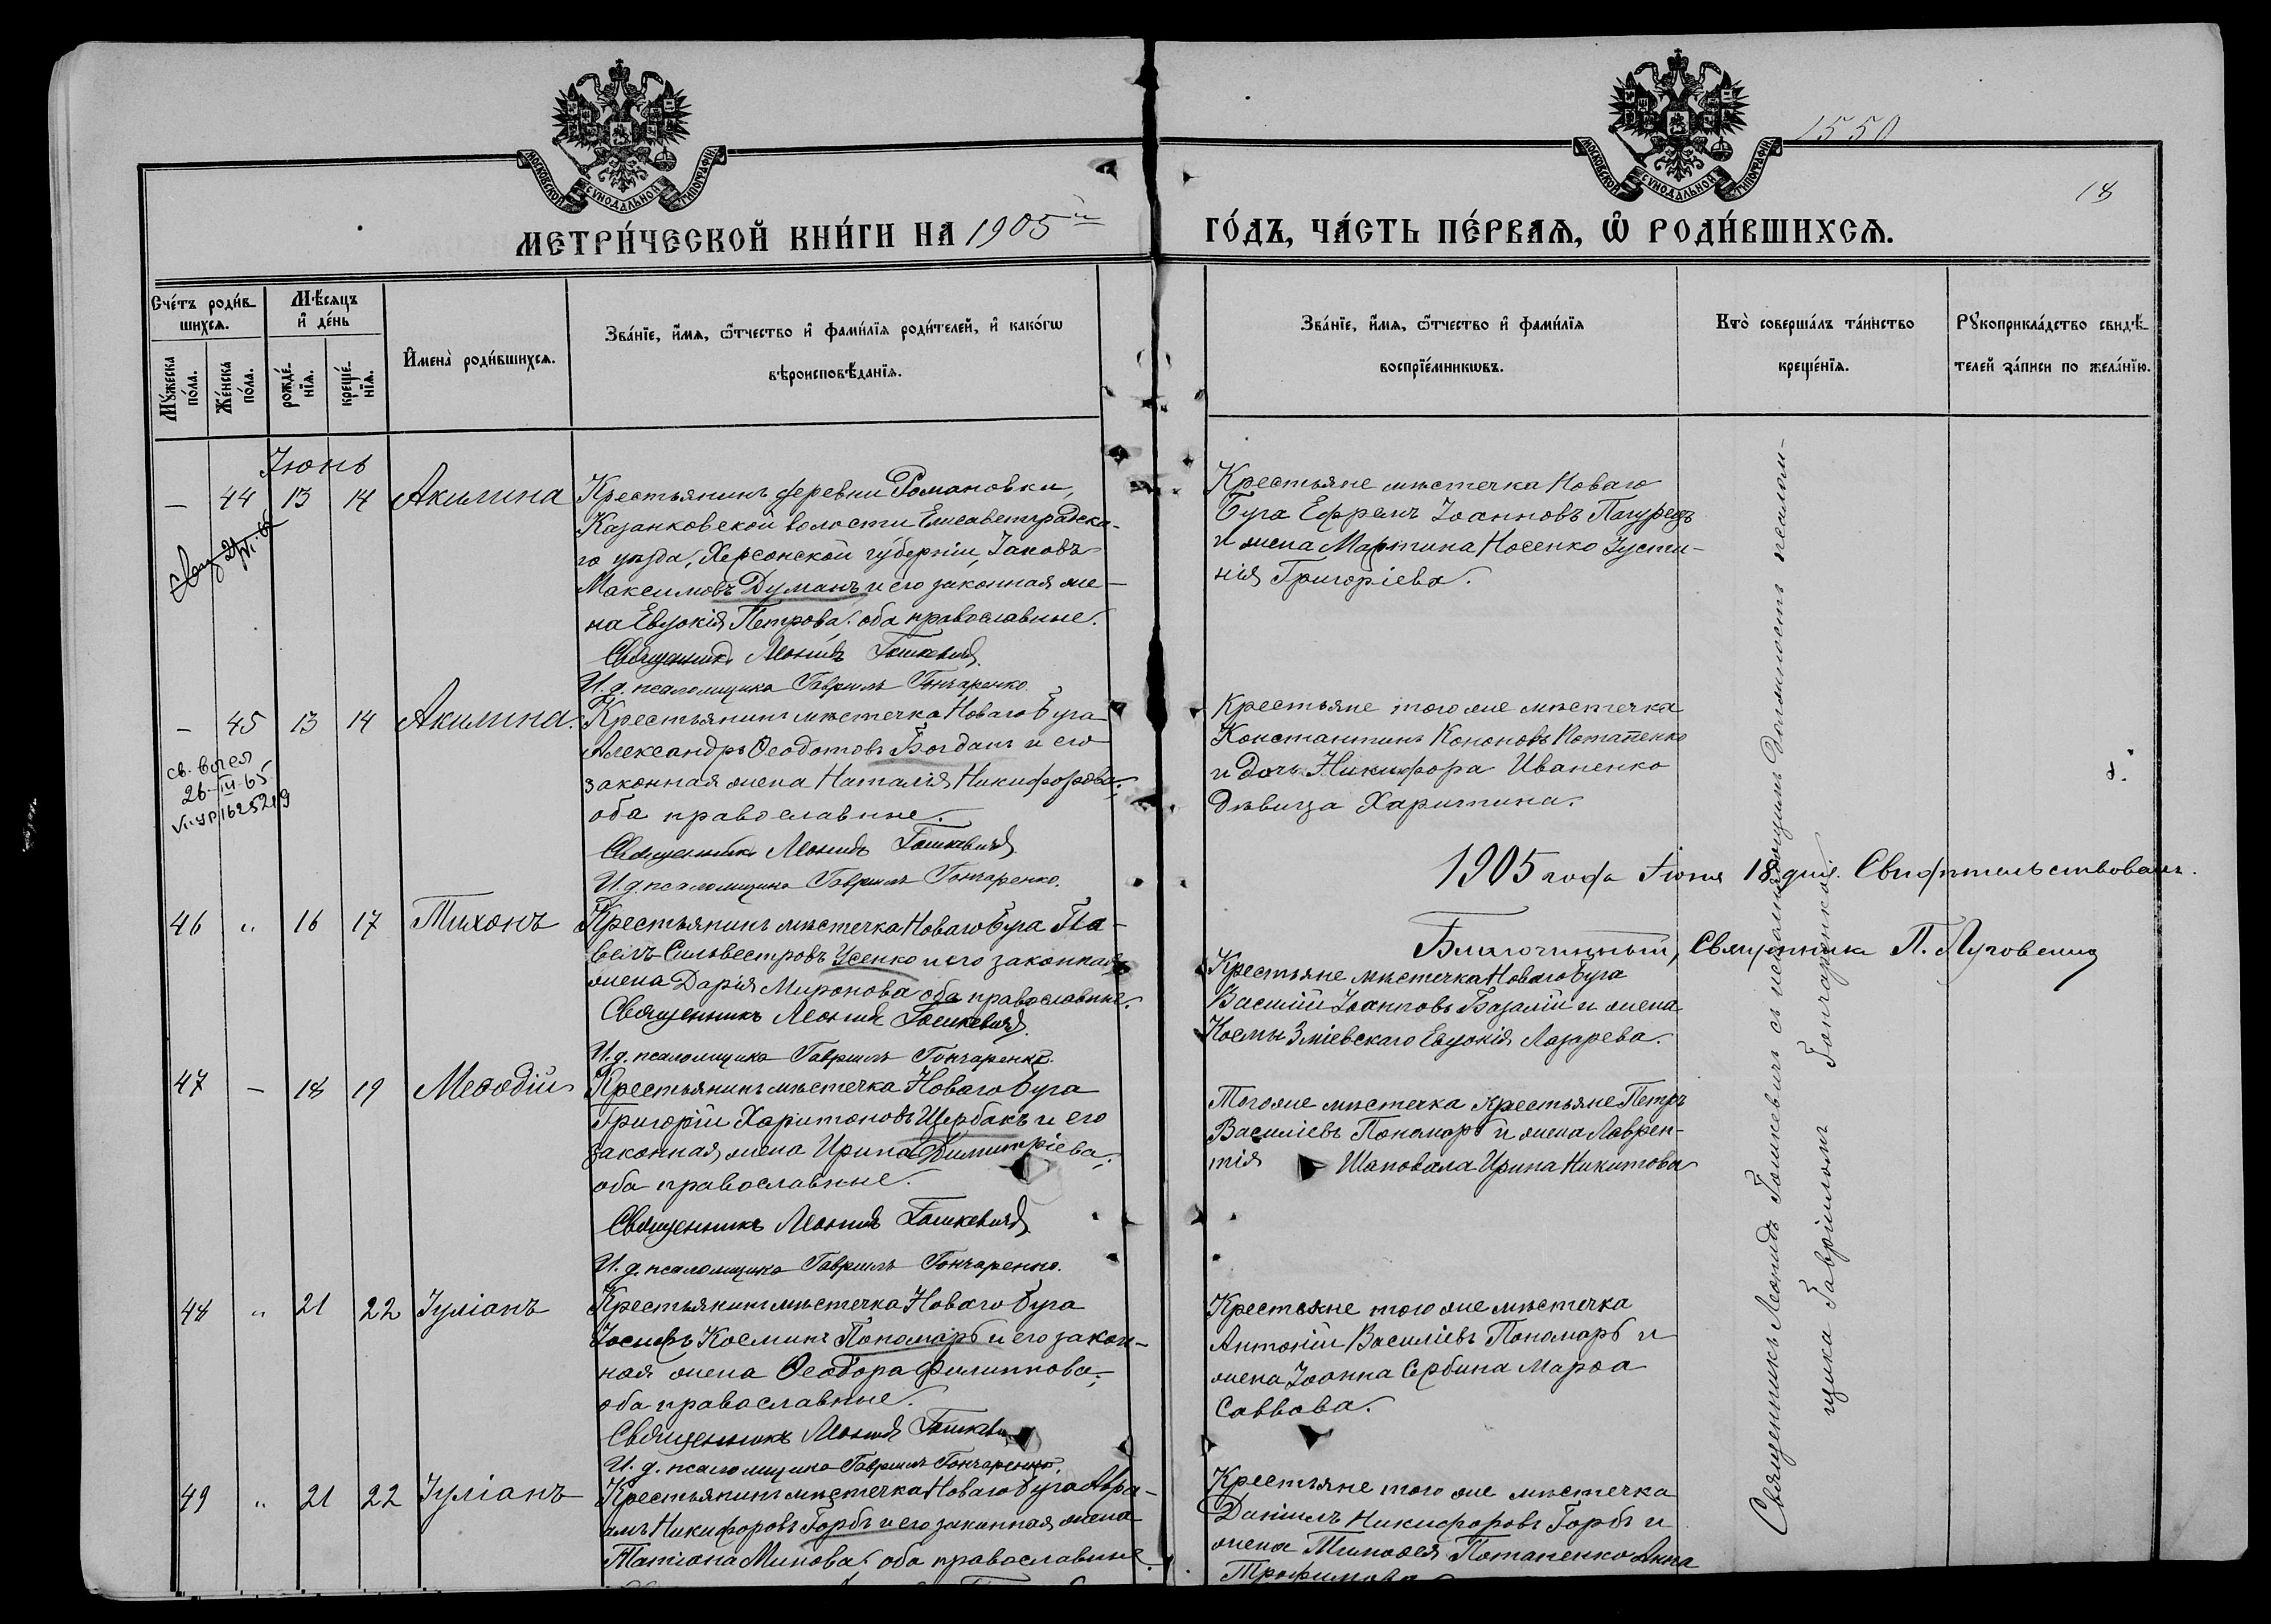 1550
18
МОСКОВСКОЙ СѴНОДАЛЬНОЙ ТИПОГРАФІИ
МОСКОВСКОЙ СѴНОДАЛЬНОЙ ТИПОГРАФІИ
МЕТРИ́ЧЕСКОЙ КНИ́ГИ НА 1905й ГО́ДЪ, ЧА́СТЬ ПЕ́РВАѦ, Ѽ РОДИ́ВШИХСѦ.
Сче́тъ роди́вшихсѧ.
Мꙋ́жеска по́ла.
Же́нска по́ла.
Мѣ́сѧцъ и҆ де́нь
рожде́нїѧ.
креще́нїѧ.
И҆мена̀ роди́вшихсѧ.
Зва́нїе, и҆́мѧ, ѻ҆́тчество и҆ фами́лїѧ роди́телей, и҆ како́гѡ
вѣроисповѣ́данїѧ.
Зва́нїе, и҆́мѧ, ѻ҆́тчество и҆ фами́лїѧ
воспрїе́мникѡвъ.
Кто̀ соверша́лъ та́инство
креще́нїѧ.
Рꙋкоприкла́дство свидѣ́телей за́писи по жела́нїю.
Іюнь
— 44 13 14 Акилина
Крестьянинъ деревни Романовки,
Казанковской волости Елисаветградска-
го уѣзда, Херсонской губерніи, Іаковъ
Максимовъ Думанъ и его законная же-
на Евдокія Петрова; оба православные.
Священникъ Леонидъ Гошкевичъ
И. д. псаломщика Гавріилъ Гончаренко.
Крестьяне мѣстечка Новаго
Буга Ефремъ Іоанновъ Пагурецъ
и жена Мартина Носенко Іусти-
нія Григоріева.
— 45 13 14 Акилина.
св.
26-III-65
1625219
Крестьянинъ мѣстечка Новаго Буга
Александръ Ѳеодотовъ Богданъ и его
законная жена Наталія Никифорова;
оба православные.
Священникъ Леонидъ Гошкевичъ
И. д. псаломщика Гавріилъ Гончаренко.
Крестьяне того же мѣстечка
Константинъ Кононовъ Потапенко
и дочь Никифора Иваненко
дѣвица Харитина.
1905 года Іюня 18 дня. Свидѣтельствовалъ.
Благочинный, Священникъ П.
46 " 16 17 Тихонъ
Крестьянинъ мѣстечка Новаго Буга Па-
велъ Сильвестровъ Усенко и его законная
жена Дарія Миронова; оба православные.
Священникъ Леонидъ Гошкевичъ
И. д. псаломщика Гавріилъ Гончаренко.
Крестьяне мѣстечка Новаго Буга
Василій Іоанновъ Базалій и жена
Космы Зміевскаго Евдокія Лазарева.
47 — 18 19 Меѳодій
Крестьянинъ мѣстечка Новаго Буга
Григорій Харитоновъ Щербакъ и его
законная жена Ирина Димитріева;
оба православные.
Священникъ Леонидъ Гошкевичъ
И. д. псаломщика Гавріилъ Гончаренко.
Того же мѣстечка крестьяне Петръ
Василіевъ Пономарь и жена Лаврен-
тія Шаповала Ирина Никитова
48 " 21 22 Іуліанъ
Крестьянинъ мѣстечка Новаго Буга
Іосифъ Косминъ Пономарь и его закон-
ная жена Ѳеодора Филиппова;
оба православные.
Священникъ Леонидъ Гошкеви
И. д. псаломщика Гавріилъ Гончаренко.
Крестьяне того же мѣстечка
Антоній Василіевъ Пономарь и
жена Іоанна Сербина Марѳа
Саввова.
49 " 21 22 Іуліанъ
Крестьянинъ мѣстечка Новаго Буга Авра-
амъ Никифоровъ Горбъ и его законная жена
Татіана Минова; оба православные.
Крестьяне того же мѣстечка
Даніилъ Никифоровъ Горбъ и
жена Тимоѳея Потапенко Анна
Трофимова
Священникъ Леонидъ Гошкевичъ съ исправляющимъ должность псалом-
щика Гавріиломъ Гончаренкою